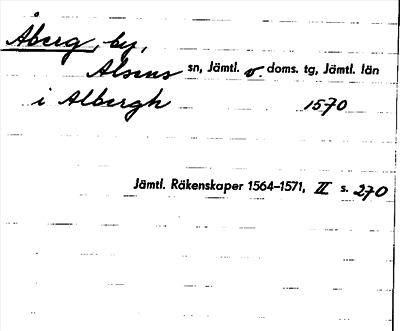 Åberg, by,
Alsens sn, Jämtl. v. doms. tg, Jämtl. län
i Albergh 1570
Jämtl. Räkenskaper 1564–1571, II s. 270